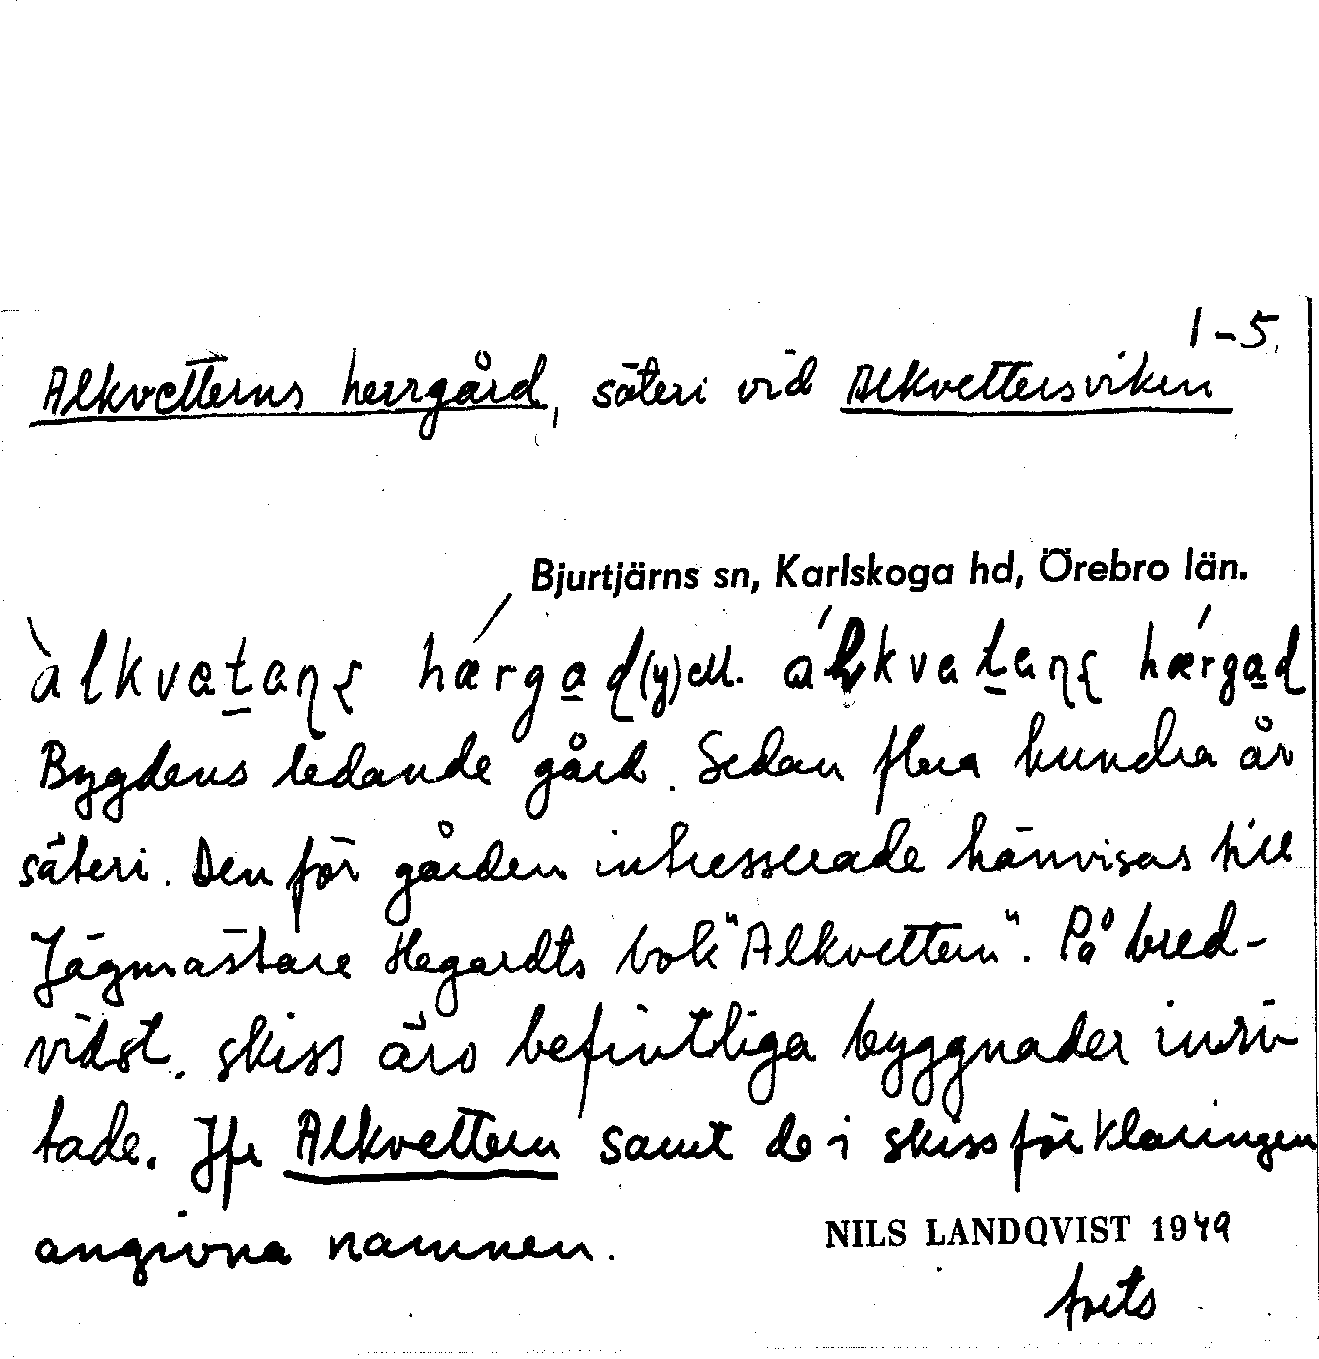 1-5.
Alkvetterns herrgård, säteri vid Alkvettersviken
Bjurtjärns sn, Karlskoga hd, Örebro län.
Bygdens ledande gård. Sedan flera hundra år
säteri. Den för gården intresserade hänvisas till
Jägmästare Hegardts bok "Alkvettern". På bred-
vidst. skiss äro befintliga byggnader inrit-
tade. Jfr Alkvettern samt de i skissförklaringen
angivna namnen.
NILS LANDQVIST 1949